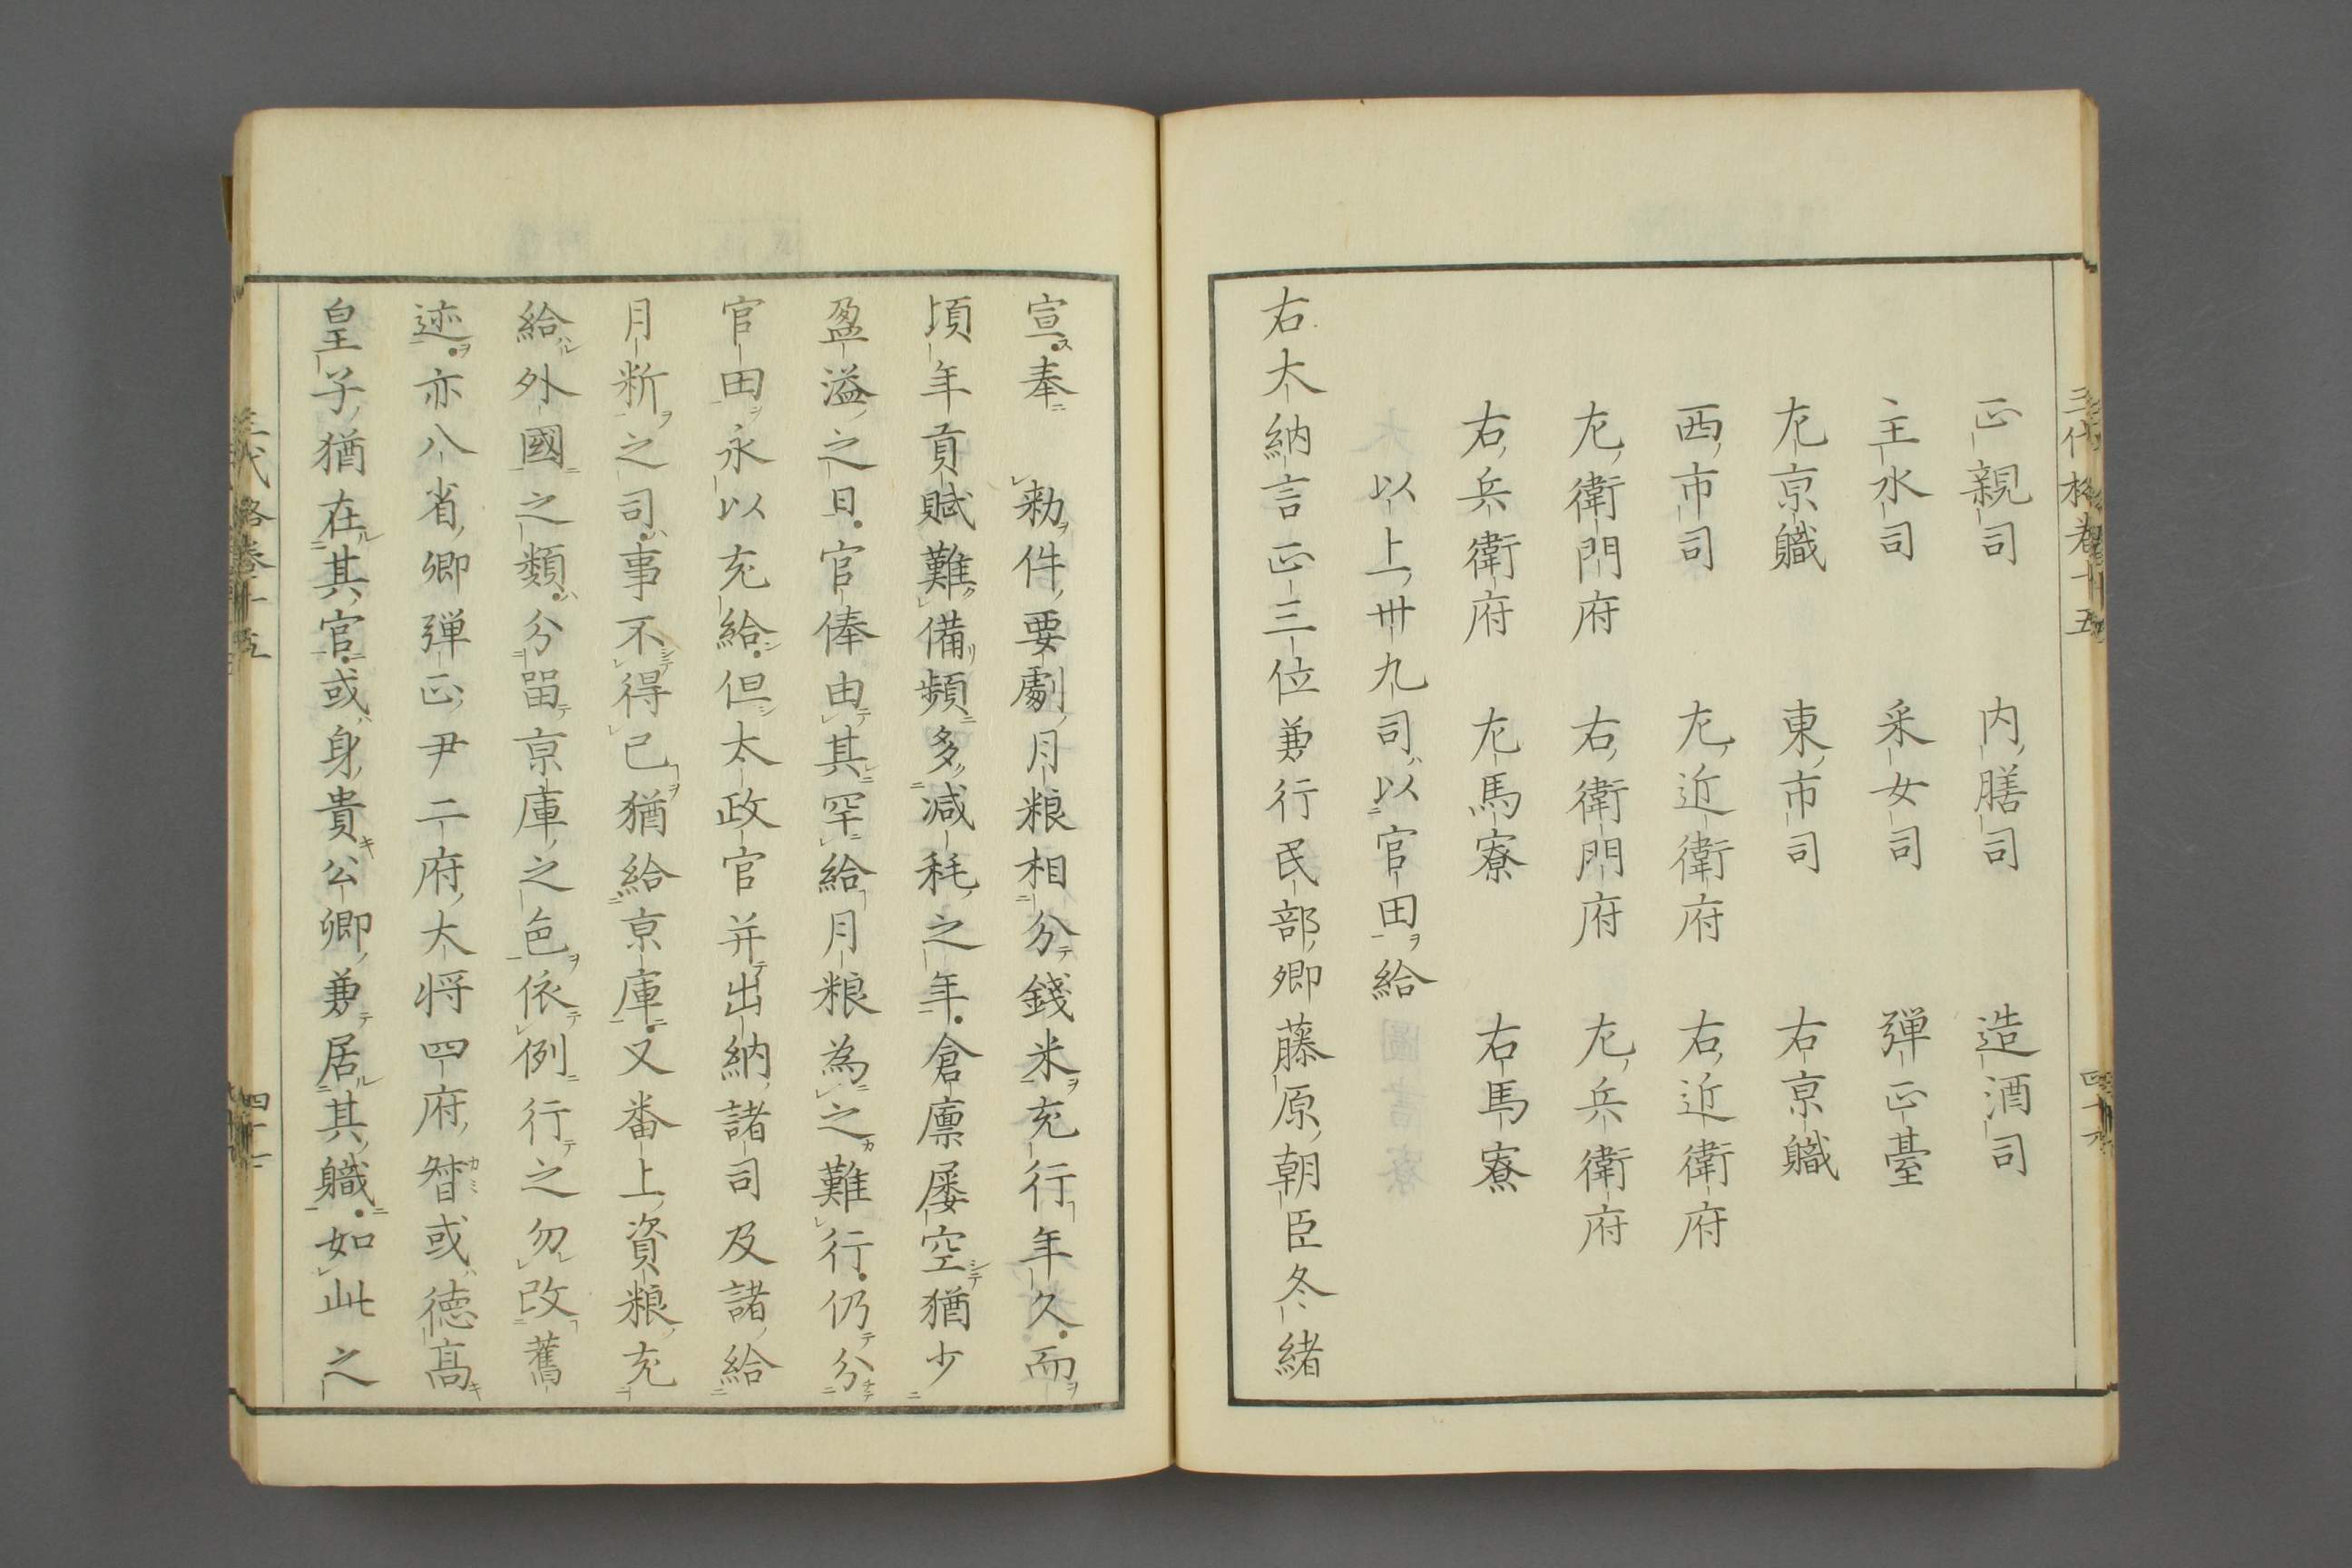 三代格卷十五
正親司 内膳司 造酒司
主水司 采女司 弾正臺
左京職 東市司 右京職
西市司 左近衛府 右近衛府
左衛門府 右衛門府 左兵衛府
右兵衛府 左馬寮 右馬寮
以上卅九司以官田給
右大納言正三位兼行民部卿藤原朝臣冬緒
宣奉 勅件要劇月粮相分錢米充行年久而
頃年貢賦難備頻多減耗之年倉廪屡空猶少
盈溢之日官俸由其罕給月粮為之難行仍分
官田永以充給但太政官并出納諸司及諸給
月料之司事不得已猶給京庫又番上資粮充
給外國之類分留京庫之色依例行之勿改舊
迹亦八省卿弾正尹二府大将四府督或徳高
皇子猶在其官或身貴公卿兼居其職如此之